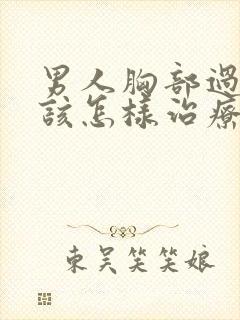 男人胸部過
該怎樣治療
東吳笑笑娘